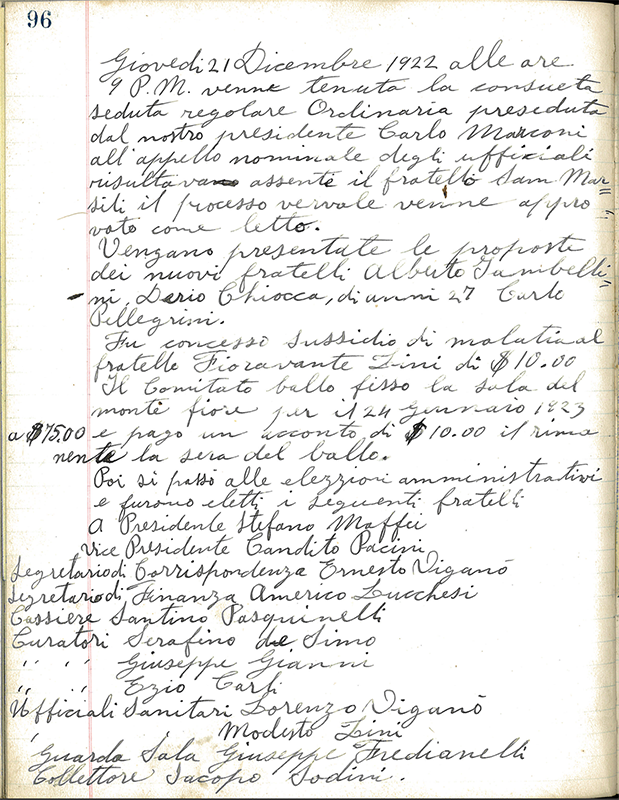 96
Giovedi 21 Dicembre 1922 alle are
9 P.M. venne tenuta la consueta
seduta regolare Ordinaria preseduta
dal nostro presidente Carlo Marconi
all'appello nominale degli ufficiali
risultava assente il fratello Sam Mar=
siti il processo vervale venne appro=
vato come letto.
Vengano presentate le proposte
dei nuovi fratelli Alberto Tambelli=
ni, Dario Chiocca, di anni 27 Carlo
Pellegrini.
Fu concesso sussidio di malatia al
fratello Fioravante Lini di $10.00
Il Comitato ballo fisso la sala del
monte fiore per il 24 Gennaio 1923
a $75.00 e pago un acconto di $10.00 il rima
nente la sera del ballo.
Poi si passò alle elezzioni amministrativi
e furono eletti i seguenti fratelli
A Presidente Stefano Maffei
Vice Presidente Candito Pacini
Segretario di Corrispondenza Ernesto Viganò
Segretario di Finanza Americo Lucchesi
Cassiere Santino Pasquinelli
Curatori Serafino de Simo
" " Giuseppe Gianni
" " Ezio Carli
Ufficiali Sanitari Lorenzo Viganò
" " Modesto Lini
Guarda Sala Giuseppe Fredianelli
Collettore Jacopo Sodini.